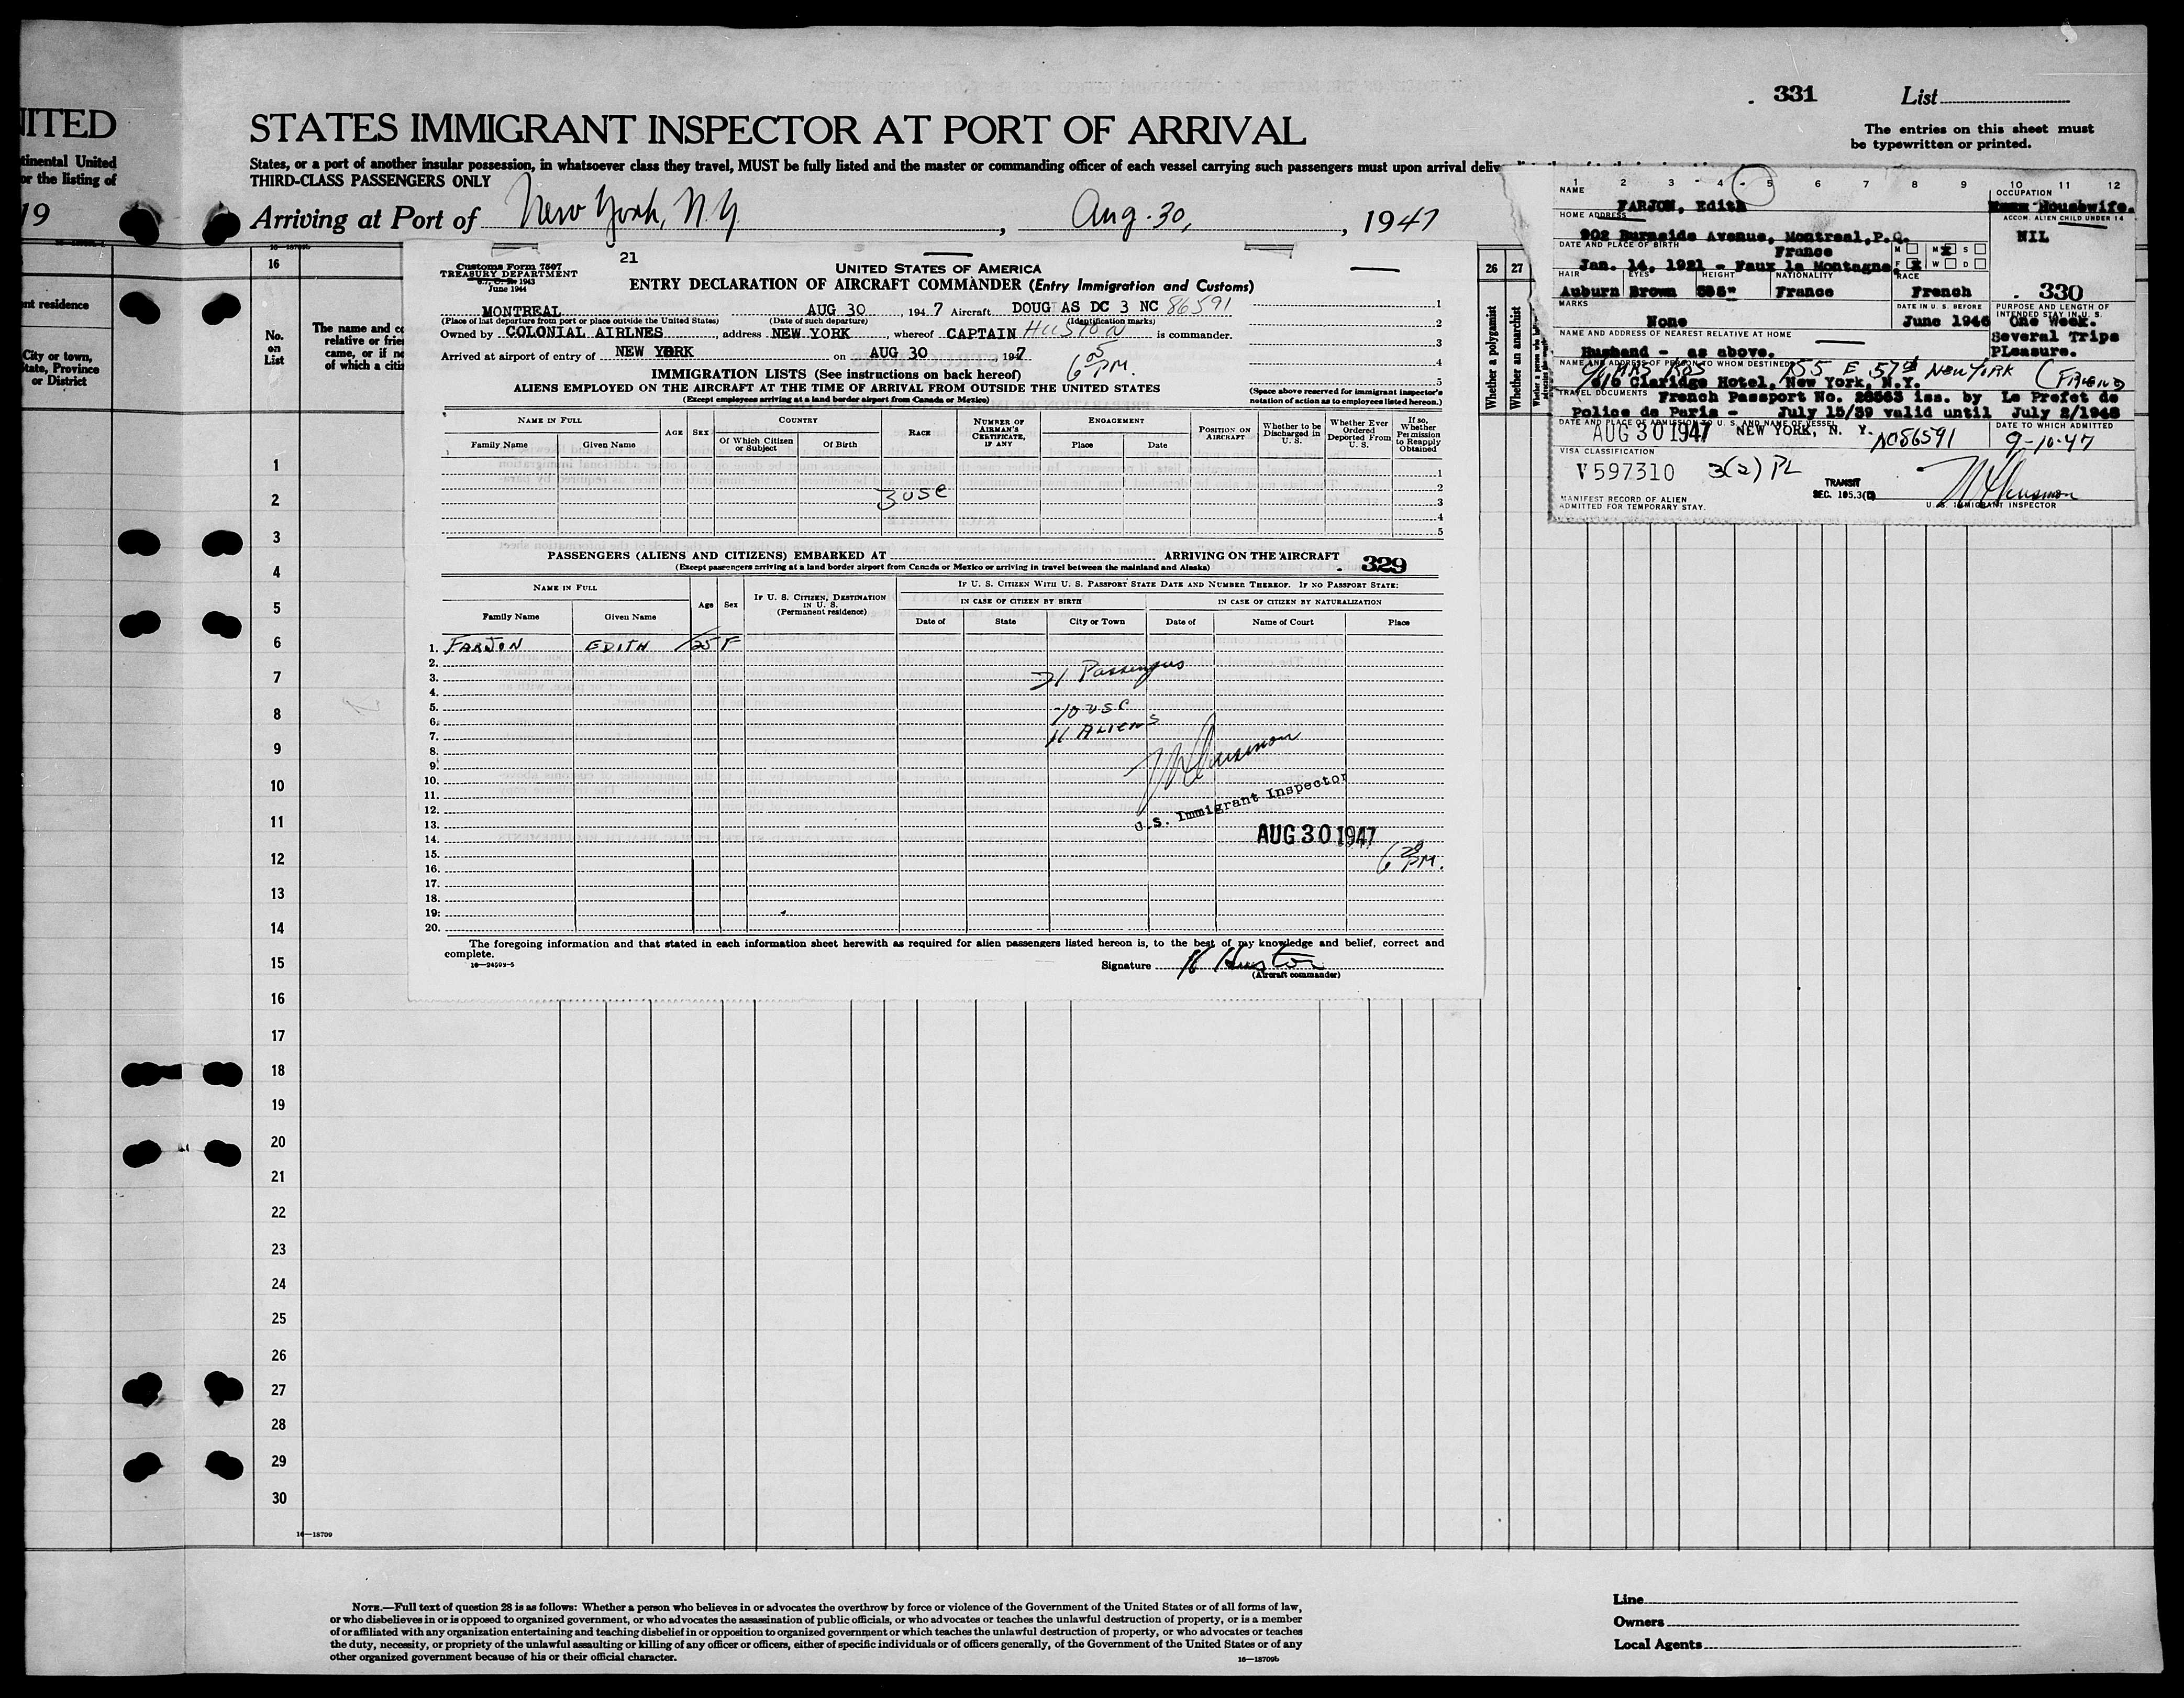 . 331
List
The entries on this sheet must
be typewritten or printed.
NITED
STATES IMMIGRANT INSPECTOR AT PORT OF ARRIVAL
tinental United
or the listing of
19
States, or a port of another insular possession, in whatsoever class they travel, MUST be fully listed and the master or commanding officer of each vessel carrying such passengers must upon arrival deliv
THIRD-CLASS PASSENGERS ONLY
Arriving at Port of New York, N.Y. , Aug. 30, , 1947
16
nt residence
City or town,
State, Province
or District
No.
on
List
The name and c
relative or frie
came, or if n
of which a citi
Customs Form 7507
TREASURY DEPARTMENT
June 1944
21
UNITED STATES OF AMERICA
ENTRY DECLARATION OF AIRCRAFT COMMANDER (Entry Immigration and Customs)
MONTREAL AUG 30 , 194 7 Aircraft DOUG AS DC 3 NC 86591
(Place of last departure from port or place outside the United States) (Date of such departure) (Identification marks)
Owned by COLONIAL AIRLNES , address NEW YORK , whereof CAPTAIN HUSTON is commander.
Arrived at airport of entry of NEW YORK on AUG 30 1947
6 05 PM.
IMMIGRATION LISTS (See instructions on back hereof)
ALIENS EMPLOYED ON THE AIRCRAFT AT THE TIME OF ARRIVAL FROM OUTSIDE THE UNITED STATES
(Except employees arriving at a land border airport from Canada or Mexico)
1
2
3
4
5
(Space above reserved for immigrant inspector's
notation of action as to employees listed hereon.)
NAME IN FULL
Family Name Given Name
AGE SEX
COUNTRY
Of Which Citizen or Subject Of Birth
RACE
NUMBER OF AIRMAN'S CERTIFICATE, IF ANY
ENGAGEMENT
Place Date
POSITION ON AIRCRAFT
Whether to be Discharged in U. S.
Whether Ever Ordered Deported From U. S.
If so, Whether Permission to Reapply Obtained
1
2
3
4
5
3 USC
PASSENGERS (ALIENS AND CITIZENS) EMBARKED AT ARRIVING ON THE AIRCRAFT
(Except passengers arriving at a land border airport from Canada or Mexico or arriving in travel between the mainland and Alaska)
. 329
NAME IN FULL
Family Name Given Name
Age Sex
IF U. S. CITIZEN, DESTINATION IN U. S.
(Permanent residence)
IF U. S. CITIZEN WITH U. S. PASSPORT STATE DATE AND NUMBER THEREOF. IF NO PASSPORT STATE:
IN CASE OF CITIZEN BY BIRTH IN CASE OF CITIZEN BY NATURALIZATION
Date of State City or Town Date of Name of Court Place
1. FARJON EDITH 25 F
2.
3.
4.
5.
6.
7.
8.
9.
10.
11.
12.
13.
14.
15.
16.
17.
18.
19.
20.
21 Passengers
10 USC
11 ALIENS
U.S. Immigrant Inspector
AUG 30 1947
6 PM.
The foregoing information and that stated in each information sheet herewith as required for alien passengers listed hereon is, to the best of my knowledge and belief, correct and
complete.
Signature H Huston
(Aircraft commander)
26 27
Whether a polygamist
Whether an anarchist
1 2 3 4 5 6 7 8 9 10 11 12
NAME
FARJON, Edith
OCCUPATION
Housewife.
HOME ADDRESS
902 Burnside Avenue, Montreal, P.Q.
ACCOM. ALIEN CHILD UNDER 14
NIL
DATE AND PLACE OF BIRTH
France
Jan. 14, 1921 - Faux la Montagne,
M M S
F W D
HAIR EYES HEIGHT NATIONALITY RACE
Auburn Brown 5'5" France French
. 330
MARKS
None
DATE IN U. S. BEFORE
June 1946
PURPOSE AND LENGTH OF
INTENDED STAY IN U. S.
One Week.
Several Trips
PLeasure.
NAME AND ADDRESS OF NEAREST RELATIVE AT HOME
Husband - as above.
NAME AND ADDRESS OF PERSON TO WHOM DESTINED
155 E 57th NEW YORK (FRIEND)
Claridge Hotel, New York, N.Y.
TRAVEL DOCUMENTS
French Passport No. 28563 iss. by Le Prefet de
Police de Paris - July 15/39 valid until July 2/1948
DATE AND PLACE OF ADMISSION TO U. S. AND NAME OF VESSEL
AUG 30 1947 NEW YORK, N. Y. NC86591
DATE TO WHICH ADMITTED
9-10-47
VISA CLASSIFICATION
V 597310 3(2) PL
TRANSIT
SEC. 105.3(C)
MANIFEST RECORD OF ALIEN
ADMITTED FOR TEMPORARY STAY.
U. S. IMMIGRANT INSPECTOR
1
2
3
4
5
6
7
8
9
10
11
12
13
14
15
16
17
18
19
20
21
22
23
24
25
26
27
28
29
30
16—18709
NOTE.—Full text of question 28 is as follows: Whether a person who believes in or advocates the overthrow by force or violence of the Government of the United States or of all forms of law,
or who disbelieves in or is opposed to organized government, or who advocates the assassination of public officials, or who advocates or teaches the unlawful destruction of property, or is a member
of or affiliated with any organization entertaining and teaching disbelief in or opposition to organized government or which teaches the unlawful destruction of property, or who advocates or teaches
the duty, necessity, or propriety of the unlawful assaulting or killing of any officer or officers, either of specific individuals or of officers generally, of the Government of the United States or of any
other organized government because of his or their official character.
16—18709b
Line
Owners
Local Agents